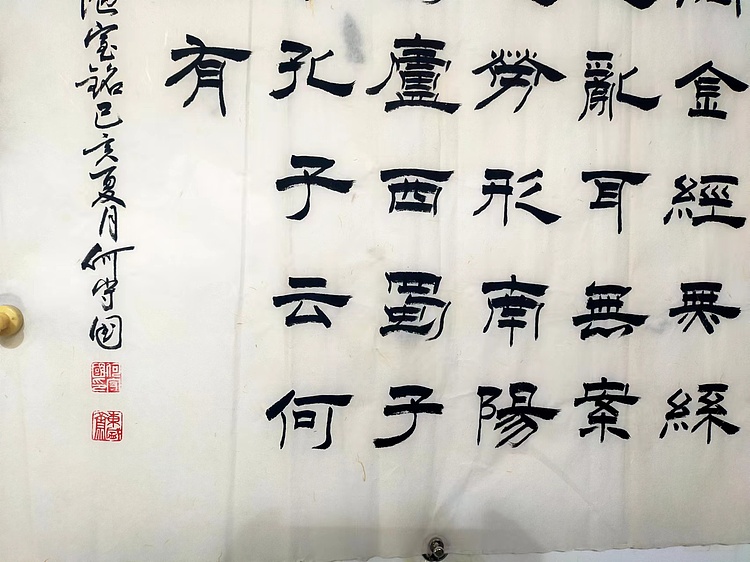 金經無絲
亂耳無案
勞形南陽
廬西蜀子
孔子云何
有
室銘己亥夏月何守国